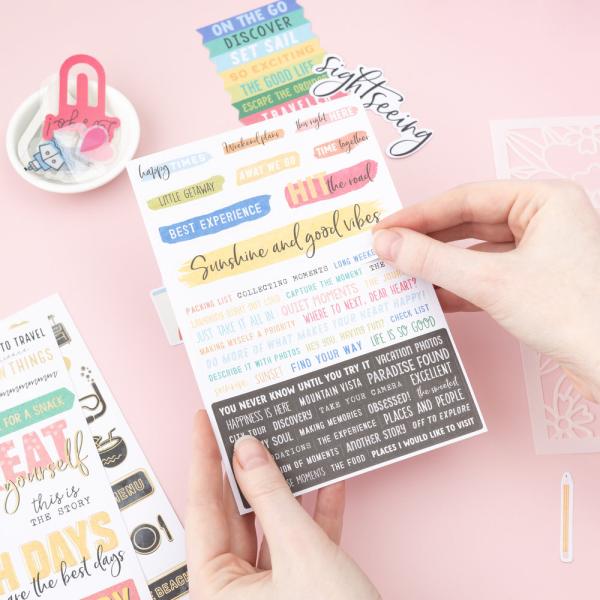 ON THE GO
DISCOVER
SET SAIL
SO EXCITING
THE GOOD LIFE
ESCAPE THE
TRAVELER
sightseeing
happy TIMES
Weekend plans
this right HERE
LITTLE GETAWAY
AWAY WE GO
TIME together
BEST EXPERIENCE
HIT the road
Sunshine and good vibes
PACKING LIST COLLECTING MOMENTS LONG
CAPTURE THE MOMENT THE
JUST TAKE IT ALL IN QUIET MOMENTS THE
MAKING MYSELF A PRIORITY WHERE TO NEXT, DEAR HEART?
DO MORE OF WHAT MAKES YOUR HEART HAPPY!
DESCRIBE IT WITH PHOTOS HEY, YOU HAVING FUN? CHECK LIST
SUNSET FIND YOUR WAY LIFE IS SO GOOD
YOU NEVER KNOW UNTIL YOU TRY IT VACATION PHOTOS
HAPPINESS IS HERE MOUNTAIN VISTA PARADISE FOUND
CITY TOUR DISCOVERY TAKE YOUR CAMERA EXCELLENT
SOUL MAKING MEMORIES OBSESSED! the sweetest
THE EXPERIENCE PLACES AND PEOPLE
OF MOMENTS ANOTHER STORY OFF TO EXPLORE
MOMENTS THE FOOD PLACES I WOULD LIKE TO VISIT
TO TRAVEL
THINGS
FOR A SNACK
EAT
yourself
this is
THE STORY
DAYS
are the best days
MENU
BEACH